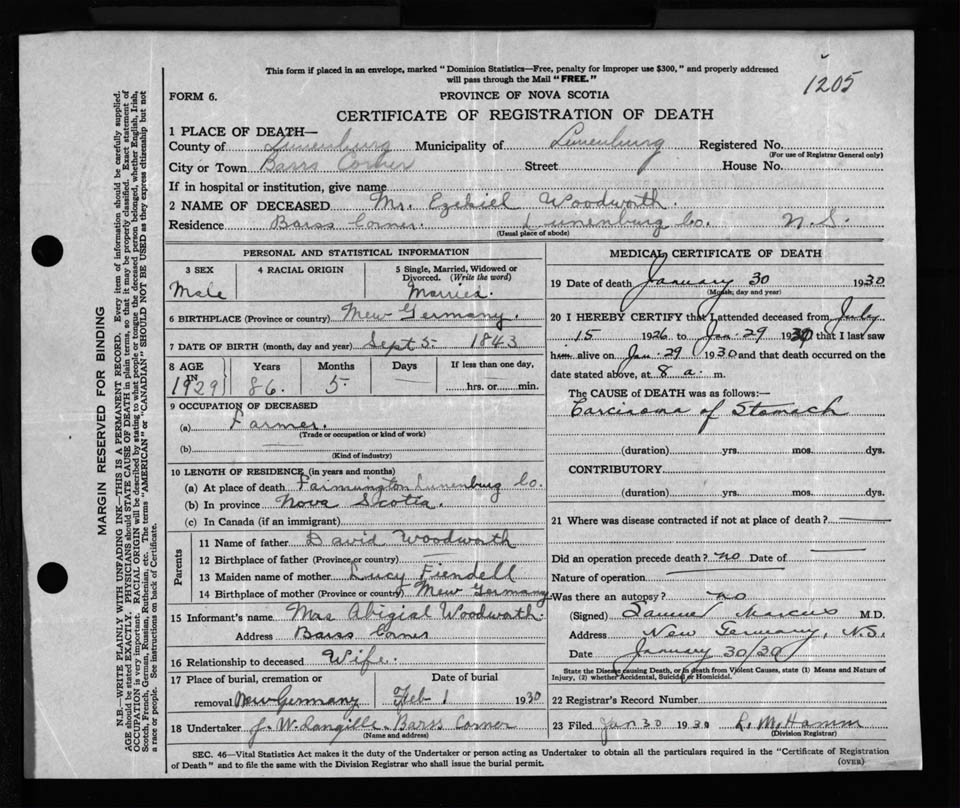 This form if placed in an envelope, marked "Dominion Statistics—Free, penalty for improper use $300," and properly addressed
will pass through the Mail "FREE."
1205
FORM 6.
PROVINCE OF NOVA SCOTIA
CERTIFICATE OF REGISTRATION OF DEATH
1 PLACE OF DEATH—
County of Lunenburg Municipality of Lunenburg Registered No.
(For use of Registrar General only)
City or Town Barss Corner Street House No.
If in hospital or institution, give name
2 NAME OF DECEASED Mr. Ezekiel Woodworth.
Residence Barss Corner. Lunenburg Co. N.S.
(Usual place of abode)
PERSONAL AND STATISTICAL INFORMATION
3 SEX
Male
4 RACIAL ORIGIN
5 Single, Married, Widowed or
Divorced. (Write the word)
Married.
6 BIRTHPLACE (Province or country) New Germany.
7 DATE OF BIRTH (month, day and year) Sept 5 1843
8 AGE Years Months Days If less than one day,
IN 1929 86. 5 — hrs. or min.
9 OCCUPATION OF DECEASED
(a) Farmer.
(Trade or occupation or kind of work)
(b)
(Kind of industry)
10 LENGTH OF RESIDENCE (in years and months)
(a) At place of death Farmington Lunenburg Co.
(b) In province Nova Scotia.
(c) In Canada (if an immigrant)
Parents
11 Name of father David Woodworth
12 Birthplace of father (Province or country) —
13 Maiden name of mother Lucy Fiendell
14 Birthplace of mother (Province or country) New Germany
15 Informant's name Mrs Abigial Woodworth.
Address Barss Corner
16 Relationship to deceased Wife.
17 Place of burial, cremation or Date of burial
removal New Germany Feb 1 1930
18 Undertaker J. W. Langille. Barss Corner
(Name and address)
MEDICAL CERTIFICATE OF DEATH
19 Date of death January 30 1930
(Month, day and year)
20 I HEREBY CERTIFY that I attended deceased from July
15 1926 to Jan. 29 1930 that I last saw
him alive on Jan. 29 1930 and that death occurred on the
date stated above, at 8 a. m.
The CAUSE OF DEATH was as follows:—
Carcinoma of Stomach
(duration) yrs. mos. dys.
CONTRIBUTORY
(duration) yrs. mos. dys.
21 Where was disease contracted if not at place of death? —
Did an operation precede death? no Date of —
Nature of operation —
Was there an autopsy? no
(Signed) Samuel Marcus M.D.
Address New Germany, N.S.
Date January 30/30
State the Disease causing Death, or in death from Violent Causes, state (1) Means and Nature of
Injury, (2) whether Accidental, Suicidal or Homicidal.
22 Registrar's Record Number
23 Filed Jan 30 1930 L. M. Hamm
(Division Registrar)
SEC. 46—Vital Statistics Act makes it the duty of the Undertaker or person acting as Undertaker to obtain all the particulars required in the "Certificate of Registration
of Death" and to file the same with the Division Registrar who shall issue the burial permit.
(OVER)
MARGIN RESERVED FOR BINDING
N.B.—WRITE PLAINLY WITH UNFADING INK—THIS IS A PERMANENT RECORD. Every item of information should be carefully supplied.
AGE should be stated EXACTLY. PHYSICIANS should STATE CAUSE OF DEATH in plain terms, so that it may be properly classified. Exact statement of
OCCUPATION is very important. RACIAL ORIGIN will be described by stating to what people or tongue the deceased person belonged, whether English, Irish,
Scotch, French, German, Russian, Ruthenian, etc. The terms "AMERICAN" or "CANADIAN" SHOULD NOT BE USED as they express citizenship but not
a race or people. See instructions on back of Certificate.